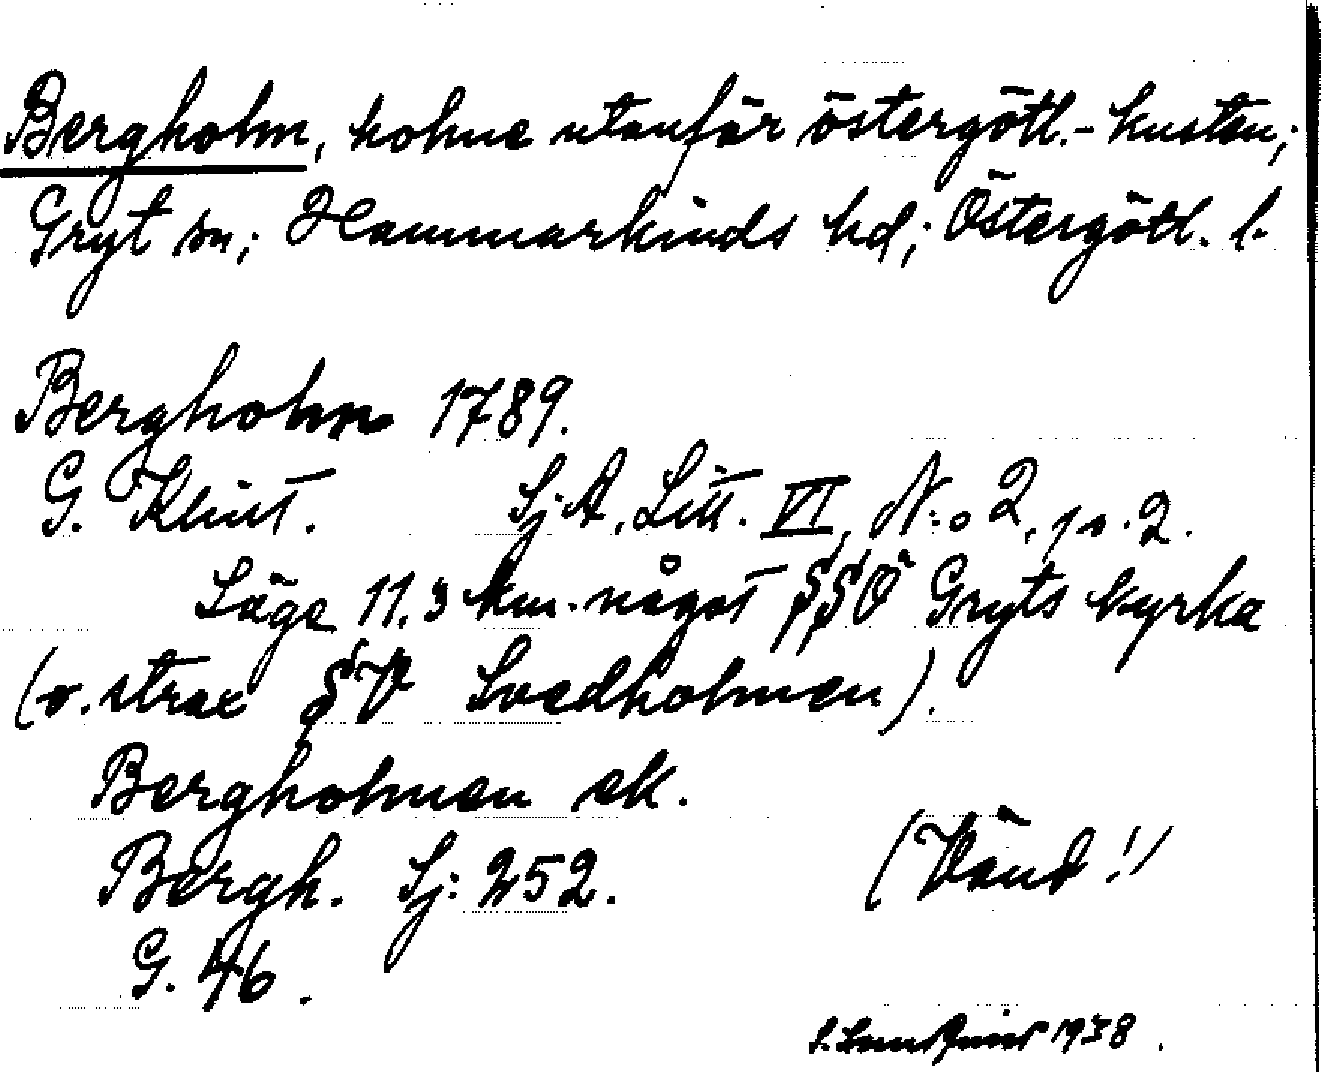 Bergholm, holme utanför östergötl.-kusten;
Gryt sn; Hammarkinds hd; Östergötl. l.
Bergholm 1789.
G. Klint. Sj. A. Litt. VI, N:o 2, p. 2.
Läge 11.3 km. något SSÖ Gryts kyrka
(o. strax SV Svedholmen).
Bergholmen ek.
Bergh. Sj: 252.
G. 46.
(Vänd!)
1938.